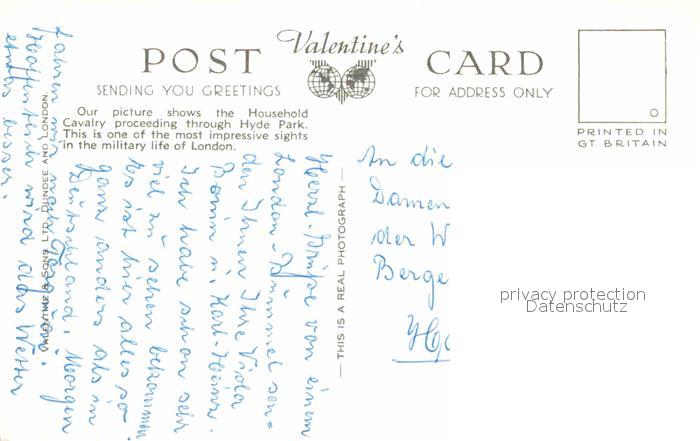 Valentine's
POST CARD
SENDING YOU GREETINGS
FOR ADDRESS ONLY
PRINTED IN
GT. BRITAIN
Our picture shows the Household
Cavalry proceeding through Hyde Park.
This is one of the most impressive sights
in the military life of London.
VALENTINE & SONS LTD. DUNDEE AND LONDON.
THIS IS A REAL PHOTOGRAPH
Herzl. Grüße von einem
London-Bummel sen=
den Ihnen Ihre Viola
u. Karl-Heinz.
Ich habe schon sehr
viel zu sehen bekommen.
Es ist hier alles so
ganz anders als in
Deutschland. Morgen
fahren wir nach
Hoffentlich wird das Wetter
etwas besser.
An die
Damen
der W
Berge
privacy protection
Datenschutz